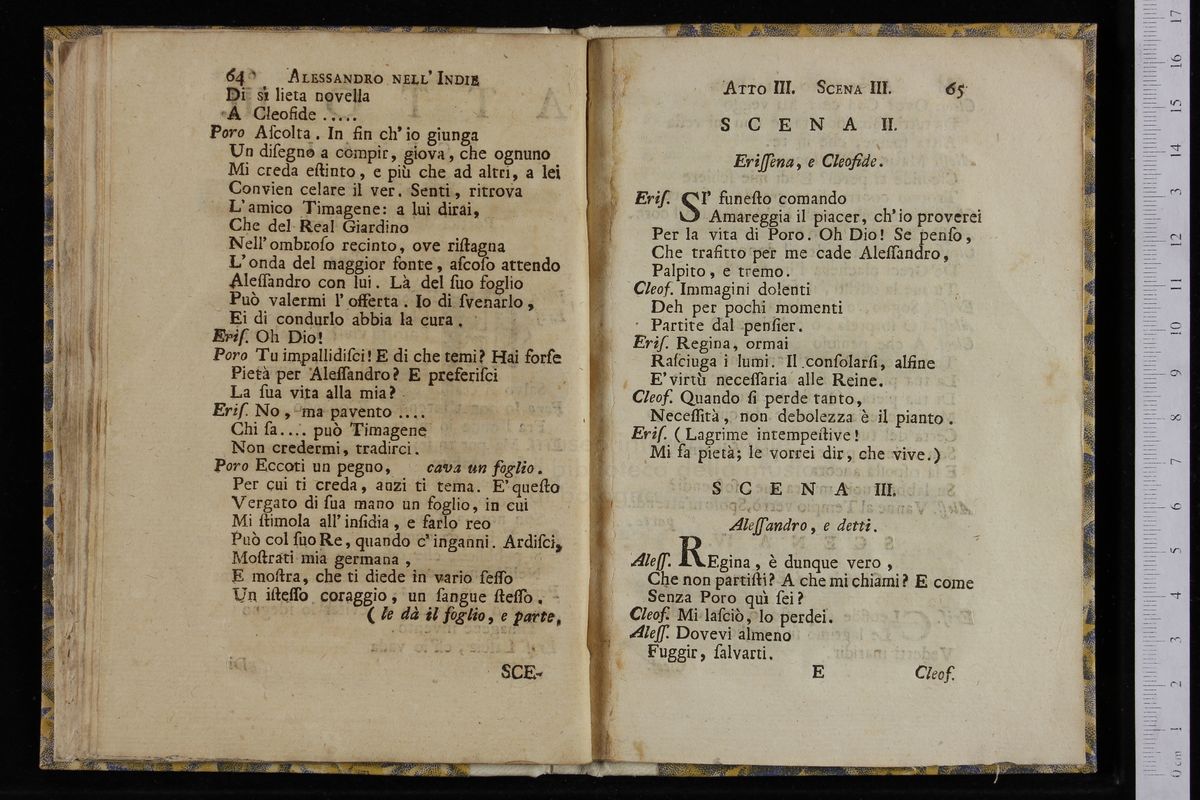 64 ALESSANDRO NELL' INDIE
Di sì lieta novella
A Cleofide .....
Poro Aſcolta. In fin ch' io giunga
Un diſegno a compir, giova, che ognuno
Mi creda eſtinto, e più che ad altri, a lei
Convien celare il ver. Senti, ritrova
L' amico Timagene: a lui dirai,
Che del Real Giardino
Nell' ombroſo recinto, ove riſtagna
L' onda del maggior fonte, aſcoſo attendo
Aleſſandro con lui. Là del ſuo foglio
Può valermi l' offerta. Io di ſvenarlo,
Ei di condurlo abbia la cura.
Eriſ. Oh Dio!
Poro Tu impallidiſci! E di che temi? Hai forſe
Pietà per Aleſſandro? E preferiſci
La ſua vita alla mia?
Eriſ. No, ma pavento ....
Chi ſa.... può Timagene
Non credermi, tradirci.
Poro Eccoti un pegno, cava un foglio.
Per cui ti creda, anzi ti tema. E' queſto
Vergato di ſua mano un foglio, in cui
Mi ſtimola all' inſidia, e farlo reo
Può col ſuo Re, quando c' inganni. Ardiſci,
Moſtrati mia germana,
E moſtra, che ti diede in vario ſeſſo
Un iſteſſo coraggio, un ſangue ſteſſo.
( le dà il foglio, e parte,
SCE-
ATTO III. SCENA III. 65
SCENA II.
Eriſſena, e Cleofide.
Eriſ. SI' funeſto comando
Amareggia il piacer, ch' io proverei
Per la vita di Poro. Oh Dio! Se penſo,
Che trafitto per me cade Aleſſandro,
Palpito, e tremo.
Cleof. Immagini dolenti
Deh per pochi momenti
Partite dal penſier.
Eriſ. Regina, ormai
Raſciuga i lumi. Il conſolarſi, alfine
E' virtù neceſſaria alle Reine.
Cleof. Quando ſi perde tanto,
Neceſſità, non debolezza è il pianto.
Eriſ. (Lagrime intempeſtive!
Mi fa pietà; le vorrei dir, che vive.)
SCENA III.
Aleſſandro, e detti.
Aleſſ. REgina, è dunque vero,
Che non partiſti? A che mi chiami? E come
Senza Poro quì ſei?
Cleof. Mi laſciò, lo perdei.
Aleſſ. Dovevi almeno
Fuggir, ſalvarti.
E Cleof.
0 cm 1 2 3 4 5 6 7 8 9 10 11 12 13 14 15 16 17